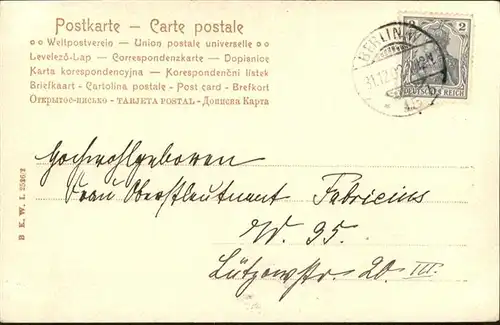 Postkarte – Carte postale
Weltpostverein – Union postale universelle
Levelező-Lap – Correspondenzkarte – Dopisnice
Karta korespondencyjna – Korespondenčni listek
Briefkaart – Cartolina postale – Post card – Brefkort
Открытое-письмо – TARJETA POSTAL – Дописна Карта
2 2
BERLIN
DEUTSCHES REICH
Hochwohlgeboren
Frau Oberstleutnant Fabricius
W. 35.
Lützowstr. 20 III.
B K. W. I. 2526/2